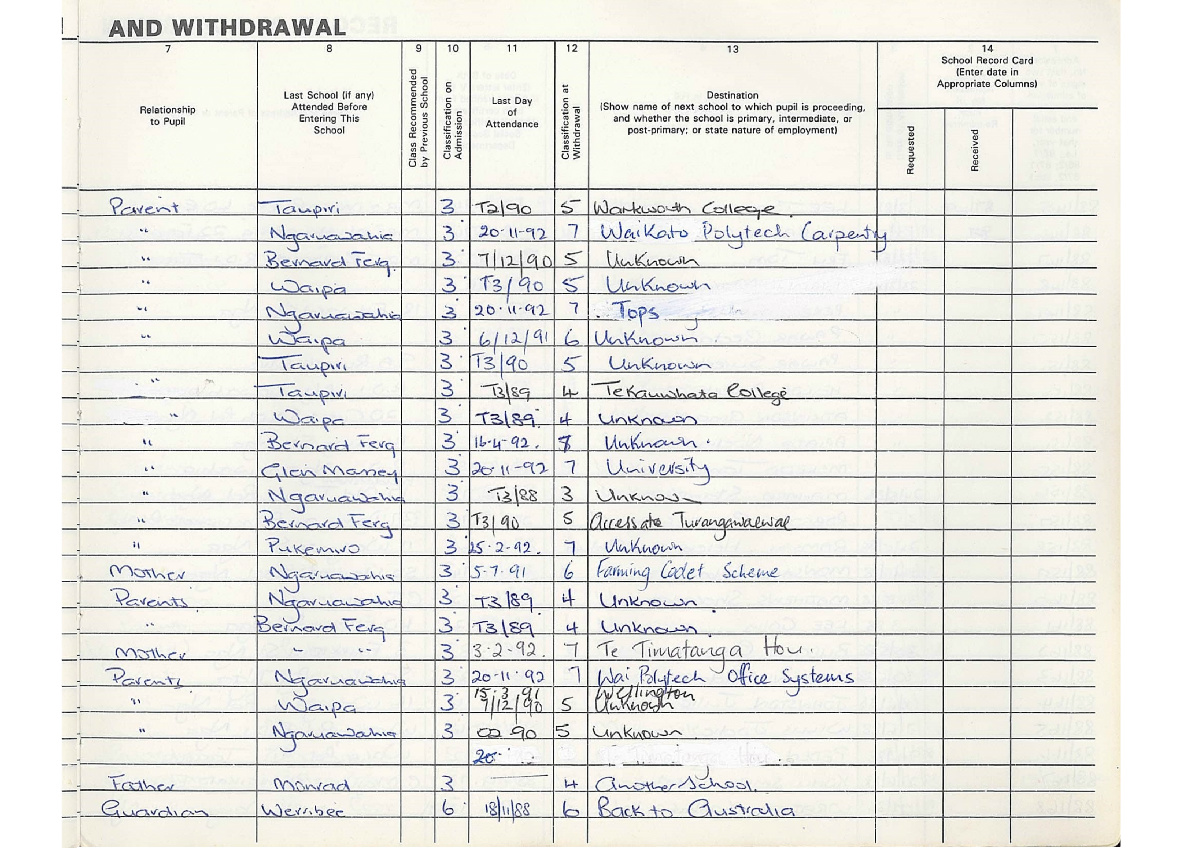 AND WITHDRAWAL
7 8 9 10 11 12 13 14
Relationship to Pupil
Last School (if any) Attended Before Entering This School
Class Recommended by Previous School
Classification on Admission
Last Day of Attendance
Classification at Withdrawal
Destination (Show name of next school to which pupil is proceeding, and whether the school is primary, intermediate, or post-primary; or state nature of employment)
School Record Card (Enter date in Appropriate Columns)
Requested
Received
Parent Taupiri 3 T2/90 5 Warkworth College
" Ngaruawahia 3 20-11-92 7 Waikato Polytech Carpentry
" Bernard Ferg. 3 7/12/90 5 Unknown
" Waipa 3 T3/90 5 Unknown
" Ngaruawahia 3 20-11-92 7 Tops
" Waipa 3 6/12/91 6 Unknown
Taupiri 3 T3/90 5 Unknown
" Taupiri 3 T3/89 4 Te Kauwhata College
" Waipa 3 T3/89 4 Unknown
" Bernard Ferg 3 16-4-92. Unknown
" Glen Massey 3 20-11-92 7 University
" Ngaruawahia 3 T3/88 3 Unknown
" Bernard Ferg 3 T3/90 5 Access ate Turangawaewae
" Pukemiro 3 25-2-92. 7 Unknown
Mother Ngaruawahia 3 5-7-91 6 Farming Cadet Scheme
Parents Ngaruawahia 3 T3/89 4 Unknown
" Bernard Ferg 3 T3/89 4 Unknown
Mother " " 3 3-2-92. 7 Te Timatanga Hou.
Parents Ngaruawahia 3 20-11-92 7 Wai Polytech Office Systems
15.3.91 Wellington
" Waipa 3 7/12/90 5 Unknown
" Ngaruawahia 3 90 5 Unknown
20
Father Monrad 3 4 Another School.
Guardian Werribee 6 18/11/88 6 Back to Australia